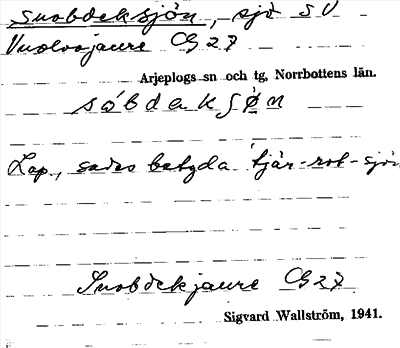 Suobdeksjön, sjö SV
Vuolvojaure CG 27
Arjeplogs sn och tg, Norrbottens län.
sóbdekʃø̀n
Lap., sades betyda "tjär-rot-sjön
Suobdekjaure CG 27
Sigvard Wallström, 1941.